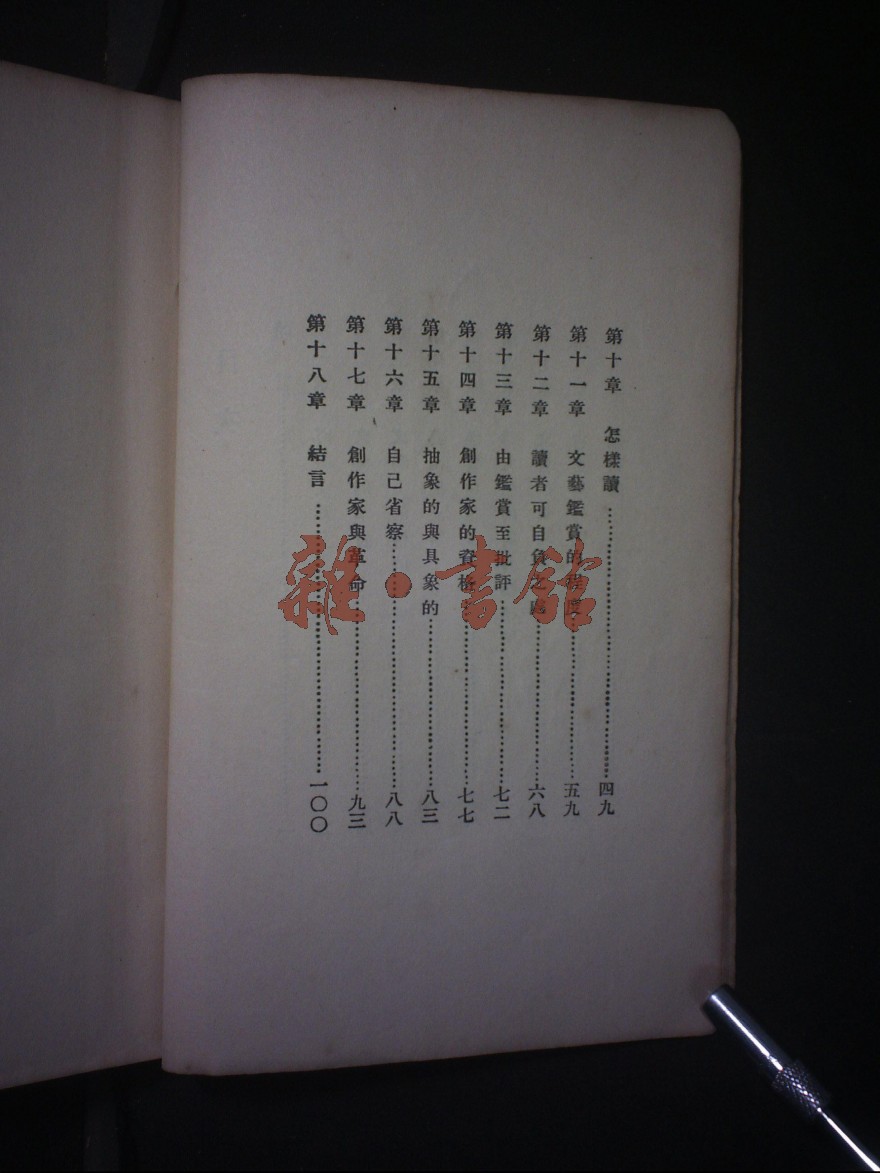 第十章 怎樣讀……………………四九
第十一章 文藝鑑賞的程度……………………五九
第十二章 讀者可自負之處……………………六八
第十三章 由鑑賞至批評……………………七二
第十四章 創作家的資格……………………七七
第十五章 抽象的與具象的……………………八三
第十六章 自己省察……………………八八
第十七章 創作家與革命……………………九三
第十八章 結言……………………一〇〇
雜·書館